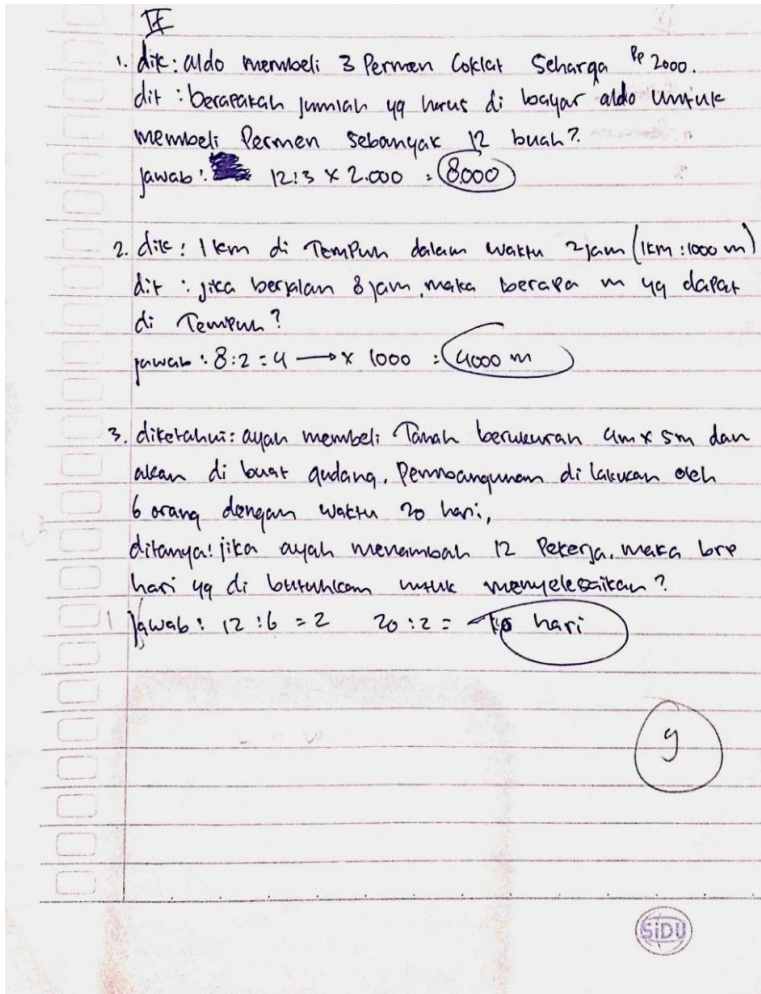 II
1. dik : aldo membeli 3 Permen Coklat Seharga Rp 2000.
dit : berapakah jumlah yg harus di bayar aldo untuk
membeli Permen Sebanyak 12 buah?
jawab : 12:3 x 2.000 = 8.000
2. dik : 1 km di TemPuh dalam waktu 2 jam (1km : 1000 m)
dit : jika berjalan 8 jam, maka berapa m yg dapat
di TemPuh?
jawab : 8:2 = 4 → x 1000 = 4000 m
3. diketahui: ayah membeli Tanah berukuran 4m x 5m dan
akan di buat gudang. Pembangunan di lakukan oleh
6 orang dengan waktu 20 hari,
ditanya: jika ayah menambah 12 Pekerja, maka brp
hari yg di butuhkan untuk menyelesaikan?
Jawab : 12 : 6 = 2 20 : 2 = hari
9
SiDU